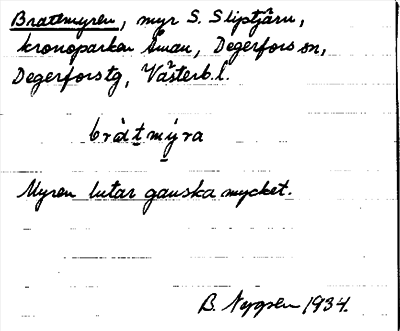 Brattmyren, myr S. Sliptjärn,
kronoparken Åman, Degerfors sn,
Degerforstg, Västerb. l.
bràtmýra
Myren lutar ganska mycket.
B. 1934.